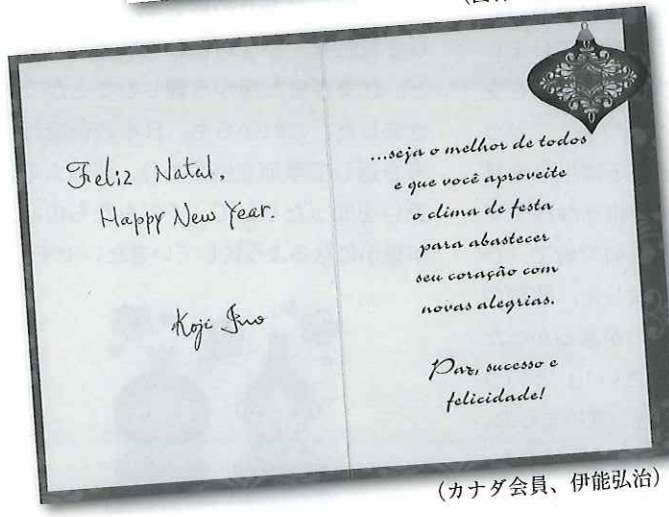 Feliz Natal.
Happy New Year.
Koji Ino
...seja o melhor de todos
e que você aproveite
o clima de festa
para abastecer
seu coração com
novas alegrias.
Paz, sucesso e
felicidade!
(カナダ会員、伊能弘治)